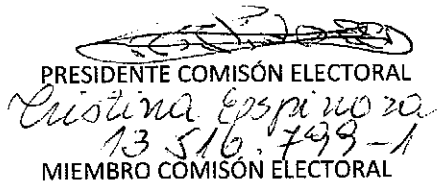 PRESIDENTE COMISÓN ELECTORAL
Cristina Espinoza
13 516.799-1
MIEMBRO COMISÓN ELECTORAL